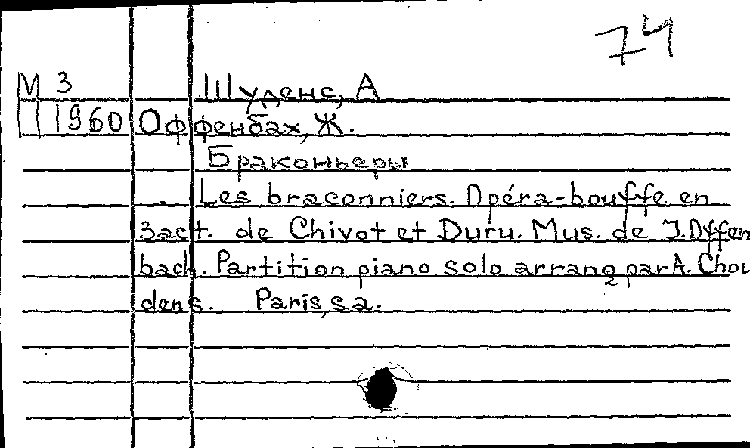 74
М 3 Шуденс, А
Ш 1960 Оффенбах, Ж.
Браконьеры
Les braconniers. Opéra-bouffe en
3 act. de Chivot et Duru. Mus. de J. Offen
bach. Partition piano solo arrang par A. Chou
dens. Paris, s.a.